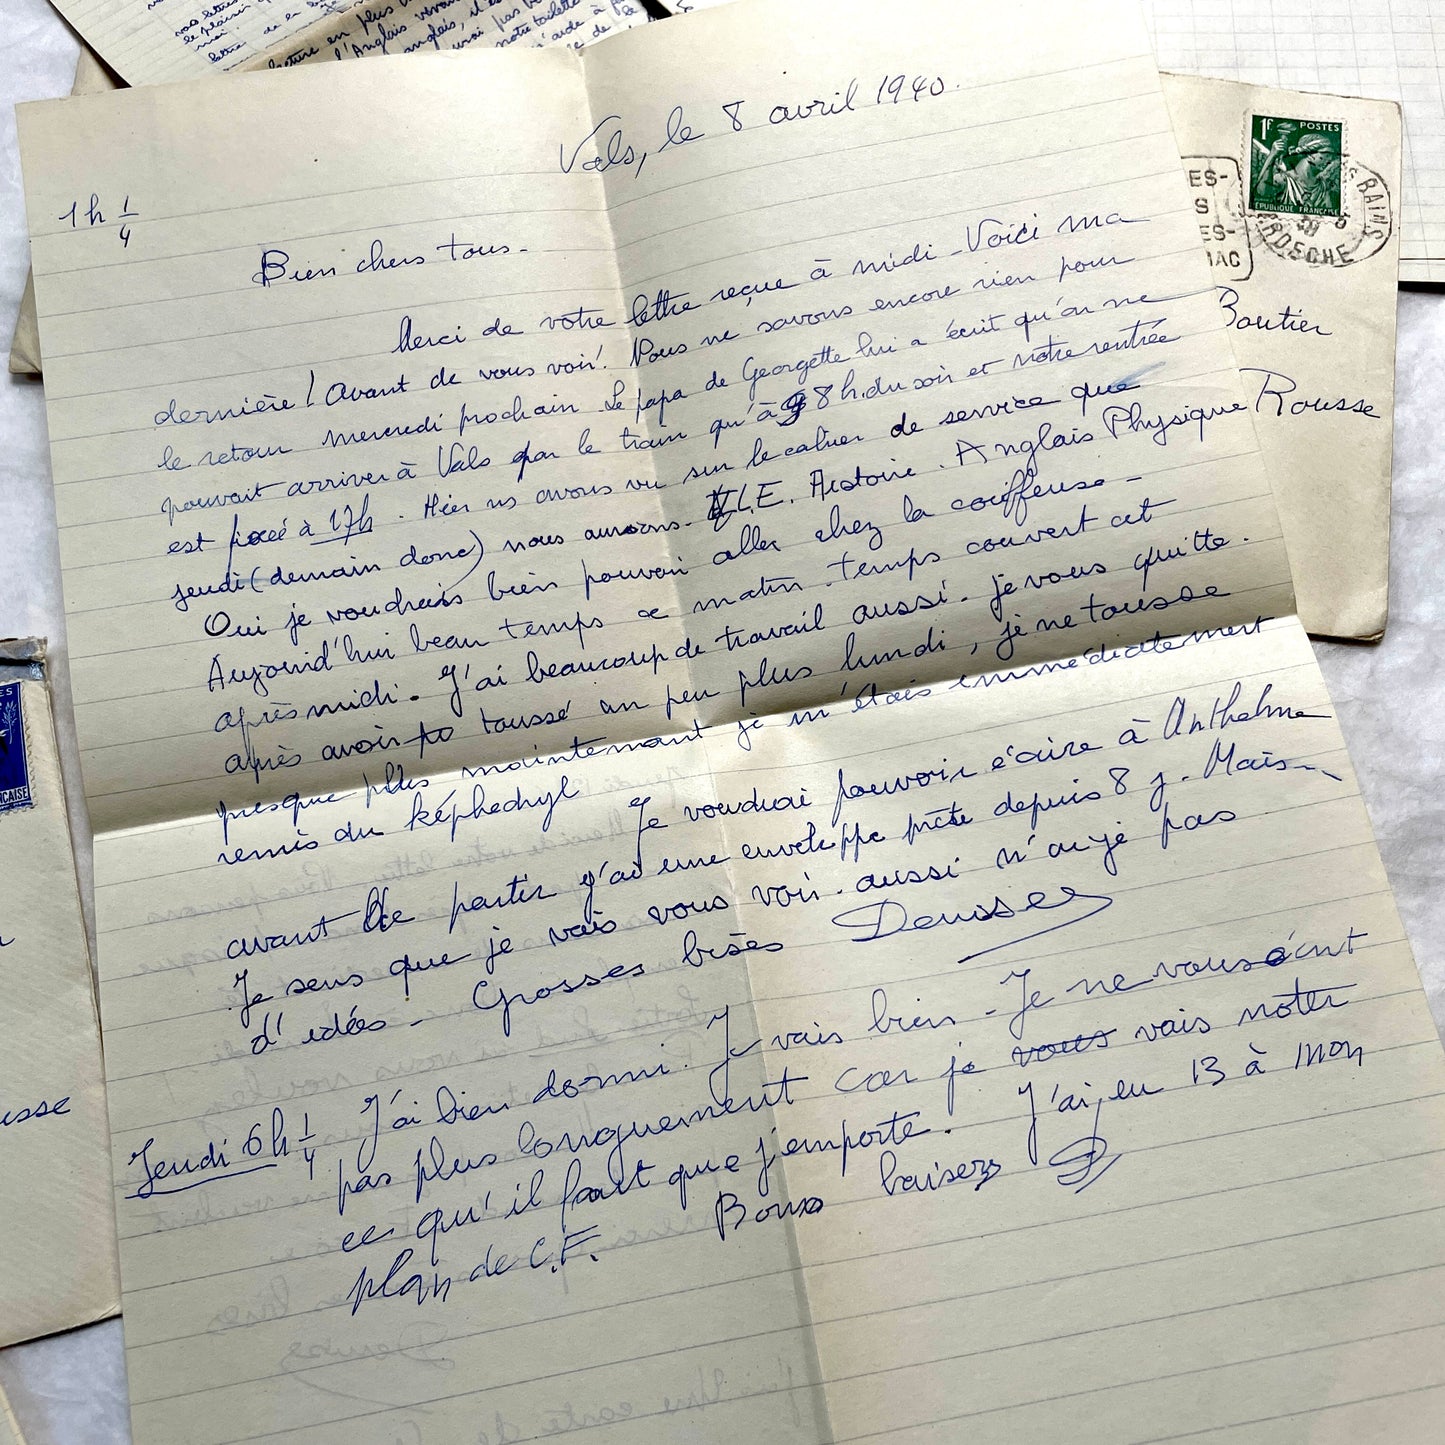 Vals, le 8 avril 1940.
1h 1/4
Bien chers tous.
Merci de votre lettre reçue à midi. Voici ma
dernière ! Avant de vous voir ! Nous ne savons encore rien pour
le retour mercredi prochain. Le papa de Georgette lui a écrit qu'on ne
pouvait arriver à Vals par le train qu'à 8h. du soir et notre rentrée
est fixée à 17h. Hier ns avons vu sur le cahier de service que
jeudi (demain donc) nous aurons. L.E. Histoire. Anglais Physique
Oui je voudrais bien pouvoir aller chez la coiffeuse.
Aujourd'hui beau temps ce matin. temps couvert cet
après midi. J'ai beaucoup de travail aussi. je vous quitte.
après avoir toussé un peu plus lundi, je ne tousse
presque plus maintenant je m'étais immédiatement
remis du képhedryl
Je voudrai pouvoir écrire à Anthelme
avant de partir j'ai une enveloppe prête depuis 8 j. Mais
Je sens que je vais vous voir. aussi n'ai je pas
d'idées. Grosses bises
Denise
Jeudi 6h 1/4 J'ai bien dormi. Je vais bien. Je ne vous écrit
pas plus longuement car je vous vais noter
ce qu'il faut que j'emporte. J'ai eu 13 à mon
plan de C.F. Bons baisers D
1F POSTES
RÉPUBLIQUE FRANÇAISE
BAINS
ARDÈCHE
Boutier
Rousse